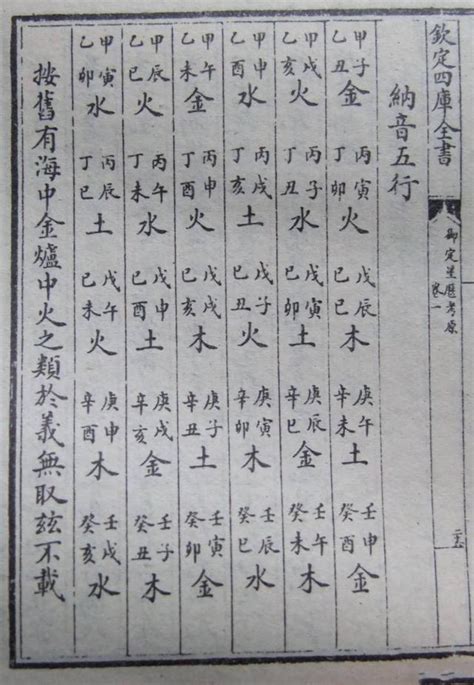 欽定四庫全書
御定星曆考原
卷一
納音五行
甲子乙丑金 丙寅丁卯火 戊辰己巳木 庚午辛未土 壬申癸酉金
甲戌乙亥火 丙子丁丑水 戊寅己卯土 庚辰辛巳金 壬午癸未木
甲申乙酉水 丙戌丁亥土 戊子己丑火 庚寅辛卯木 壬辰癸巳水
甲午乙未金 丙申丁酉火 戊戌己亥木 庚子辛丑土 壬寅癸卯金
甲辰乙巳火 丙午丁未水 戊申己酉土 庚戌辛亥金 壬子癸丑木
甲寅乙卯水 丙辰丁巳土 戊午己未火 庚申辛酉木 壬戌癸亥水
按舊有海中金爐中火之類於義無取茲不載